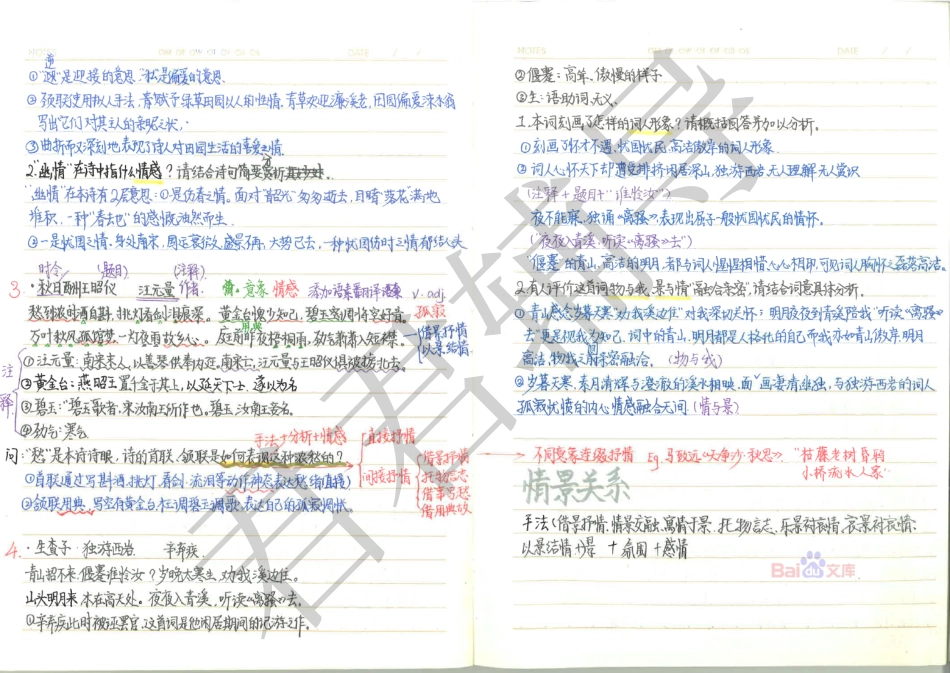 NOTES
DATE / /
逆
①"逆"是迎接的意思,"私"是偏爱的意思.
②颔联使用拟人手法,青赋予绿草田园以人的性情,青草欢迎濂溪老,田园偏爱漆水翁
写出它们对其主人的亲昵之状,
③曲折而又深刻地表现了诗人对田园生活的喜爱之情.
2."幽情"在诗中指什么情感?请结合诗句简要赏析.
"幽情"在本诗有2层意思:①是伤春之情。面对"韶光"匆匆逝去,目睹"落花"满地
堆积,一种"春去也"的感慨油然而生.
②一是忧国之情.身处南宋,国运衰微,盛景不再,大势已去,一种忧国伤时之情郁结心头
时令 (题目) (注释)
3.·秋日酬王昭仪 汪元量 作者. 情.意象 情感 v. adj.
愁到浓时酒自斟,挑灯看剑泪痕深。黄金台愧少知己,碧玉调将空好音. 孤寂
万叶秋风孤馆梦,一灯夜雨故乡心。庭前昨夜梧桐雨,劲气萧萧入短襟。
用典
借景抒情
以景结情
注释
①汪元量:南宋末人,以善琴供奉内廷,南宋亡,汪元量与王昭仪俱被掳北去。
②黄金台:燕昭王置千金于其上,以延天下士,遂以为名
③碧玉:"碧玉歌者,宋汝南王所作也。碧玉,汝南王妾名。
④劲气:寒气
手法+分析+情感
直接抒情
间接抒情
借景抒情
托物言志
借事写愁
借用典故
问:"愁"是本诗诗眼,诗的首联、颔联是如何表现这种浓愁的?
①首联通过写斟酒、挑灯、看剑、流泪等动作神态表达愁绪(直接)
②颔联用典,写空有黄金台、枉调碧玉调歌,表达自己的孤寂惆怅。
4.·生查子 独游西岩 辛弃疾.
青山招不来,偃蹇谁怜汝?岁晚太寒生,劝我溪边住。
山头明月来,本在高天处。夜夜入青溪,听读《离骚》去.
①辛弃疾此时被诬罢官,这首词是他闲居期间的记游之作。
NOTES
DATE / /
②偃蹇:高耸、傲慢的样子
③生:语助词,无义.
1.本词刻画了怎样的词人形象?请概括回答并加以分析。
①刻画了怀才不遇、忧国忧民、高洁傲岸的词人形象.
②词人心怀天下却遭受排挤闲居深山,独游西岩无人理解无人赏识
(注释+题目+"谁怜汝")
夜不能寐,独诵《离骚》表现出屈子一般忧国忧民的情怀。
("夜夜入青溪,听读《离骚》去")
"偃蹇"的青山、高洁的明月,都与词人惺惺相惜、心心相印,可见词人胸怀之磊落高洁。
2.有人评价这首词"物与我、景与情"融合无密,请结合词意具体分析。
①青山感念岁暮天寒"劝我溪边住"对我深切关怀;明月夜夜到青溪陪我"听读《离骚》
去"更是视我为知己.词中的青山、明月都是人格化的自己而我亦如青山傲岸,明月
高洁,物我之间亲密融洽. (物与我)
②岁暮天寒,素月清辉与澄澈的溪水相映,画面凄清幽独,与独游西岩的词人
孤寂忧愤的内心情感融合无间(情与景)
不同意象连缀抒情 Eg.马致远《天净沙·秋思》."枯藤老树昏鸦
小桥流水人家"
情景关系
手法(借景抒情、情景交融、寓情于景、托物言志、乐景衬哀情、哀景衬哀情、
以景结情)+景 + 氛围 + 感情
Baidu文库
君君辅导